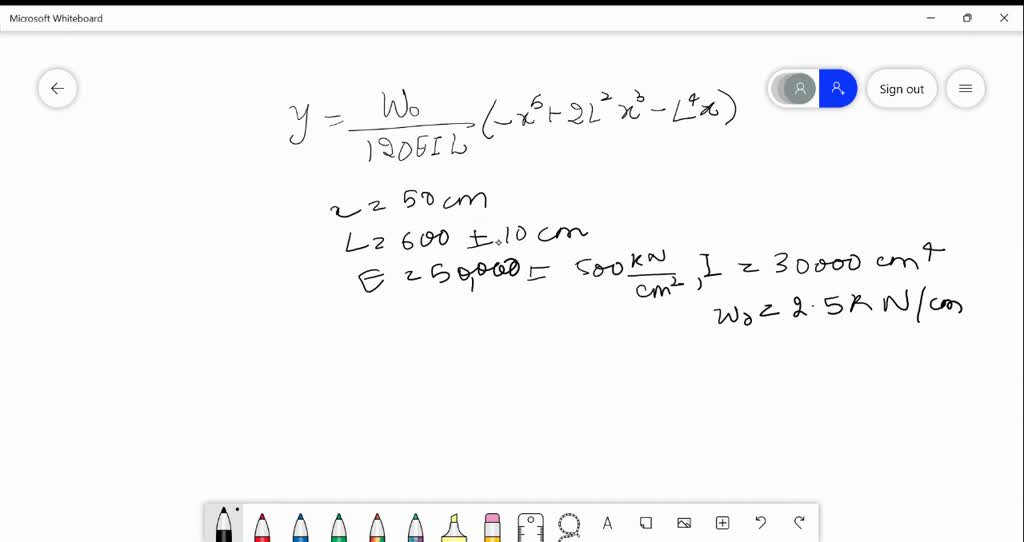 Microsoft Whiteboard
Sign out
y = W₀ / 120EIL (-x⁵ + 2L²x³ - L⁴x)
x = 50 cm
L = 600 ± 10 cm
E = 50,000 ± 500 kN/cm², I = 30000 cm⁴
w₀ = 2.5 kN/cm
A